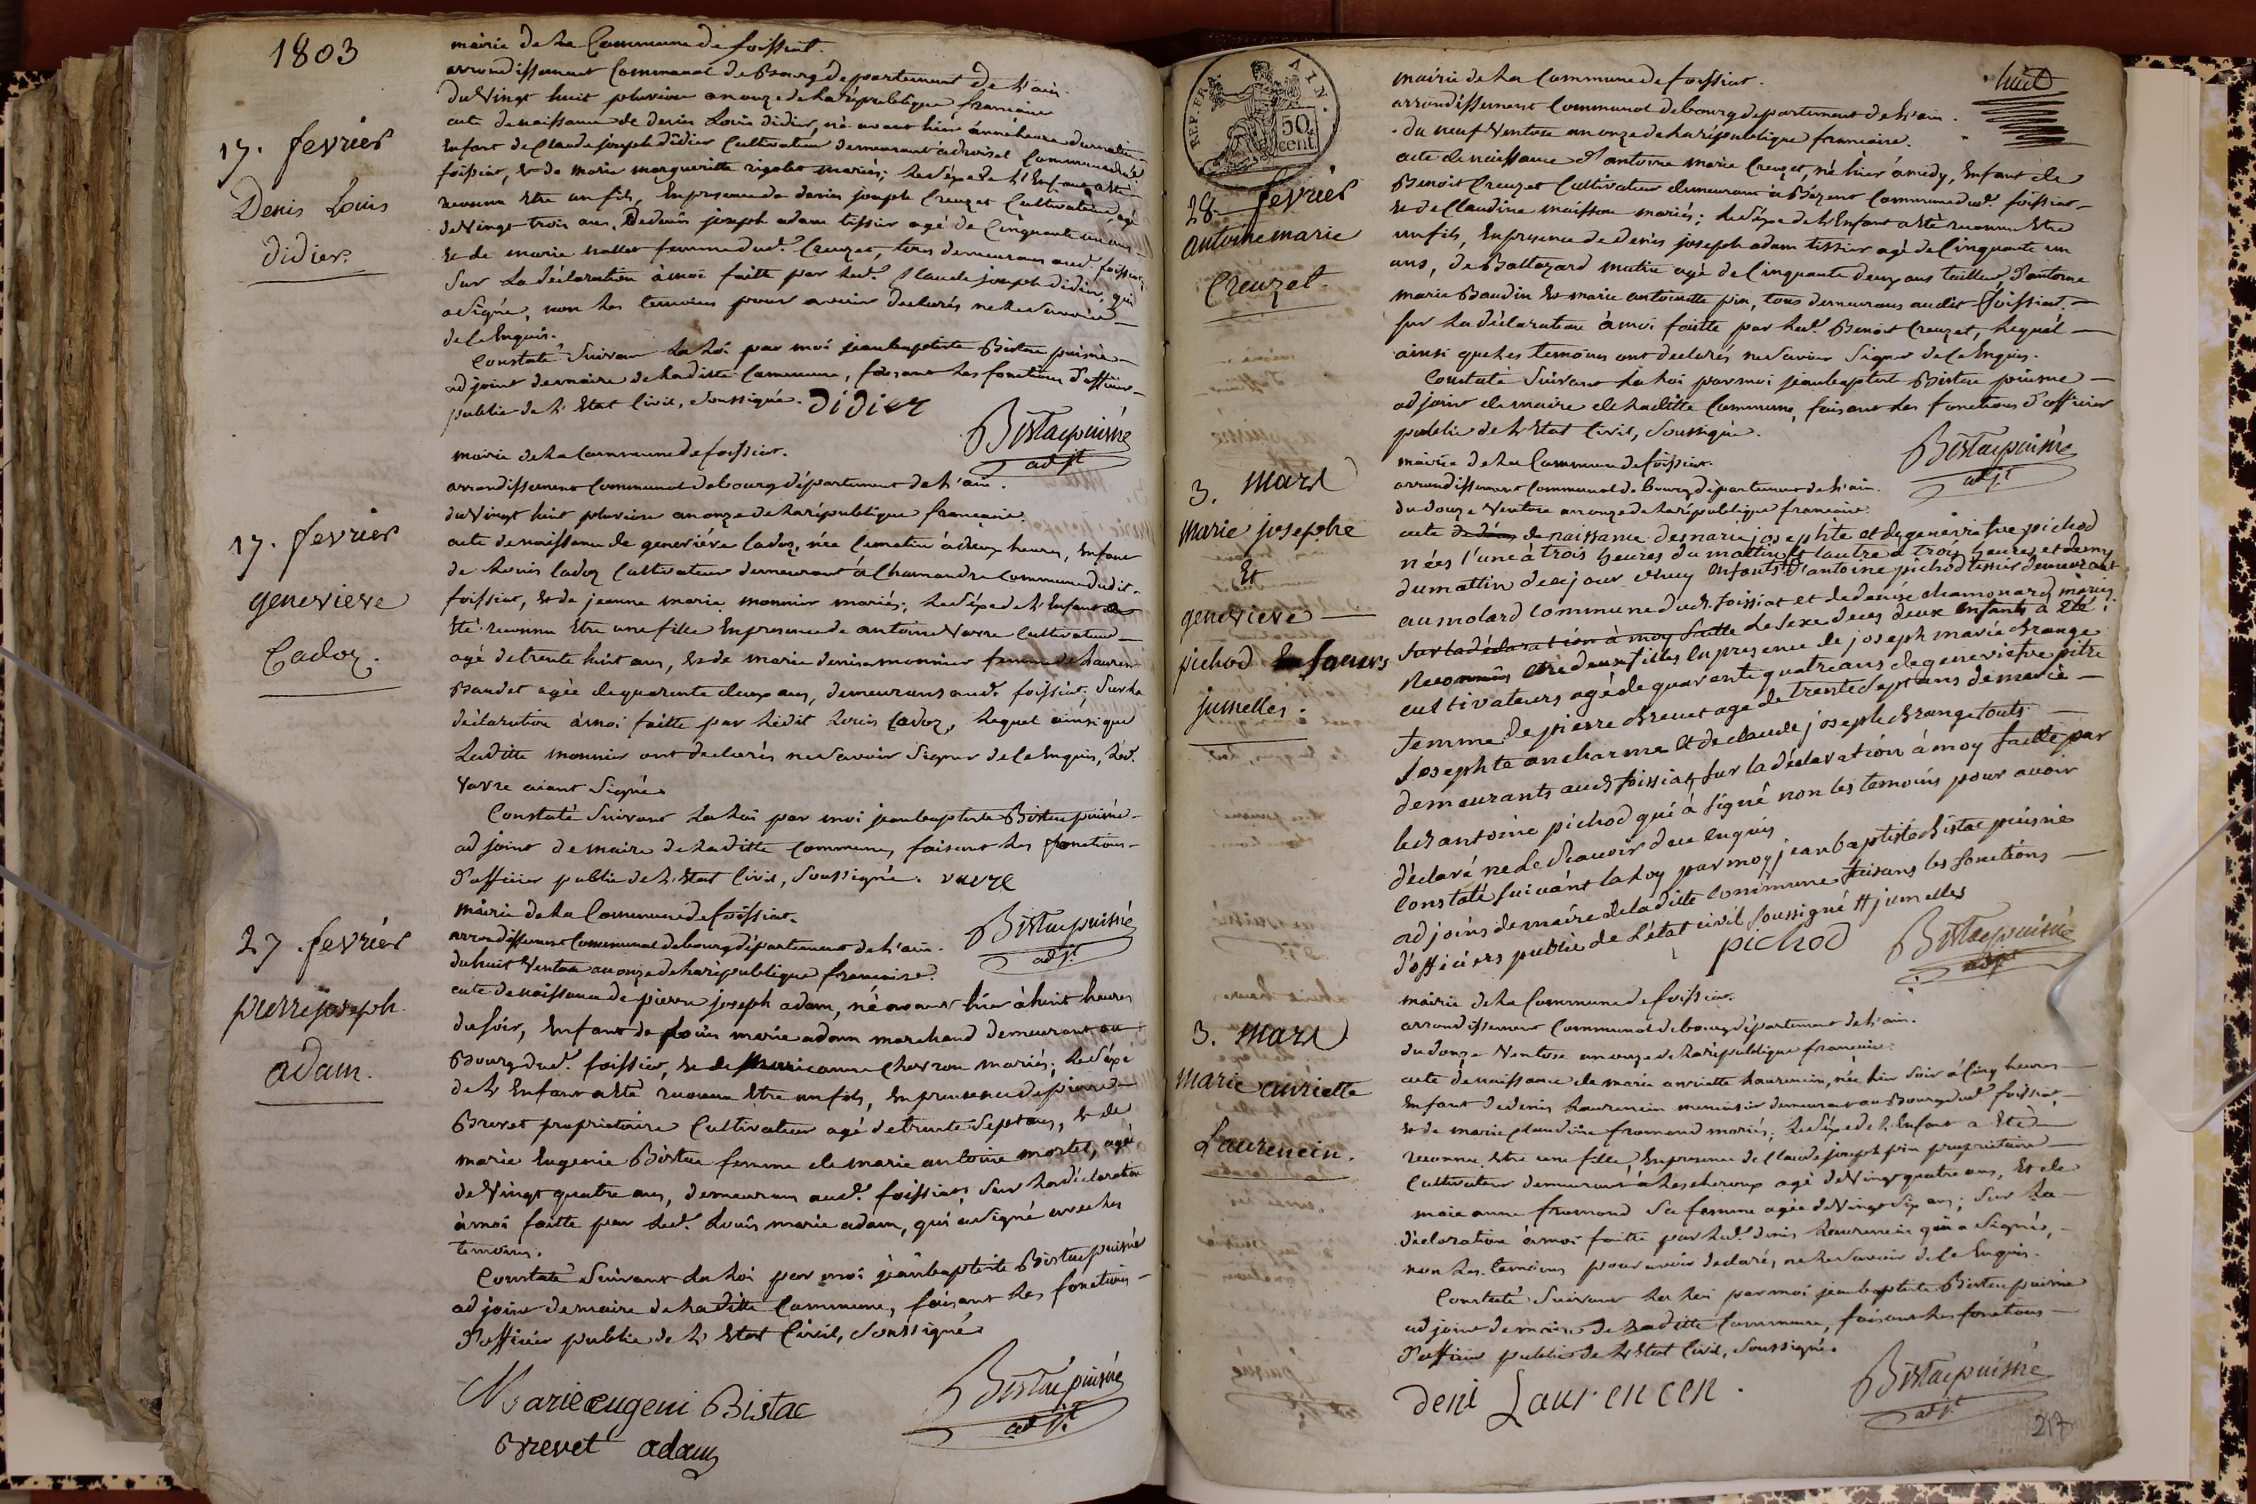 1803
mairie de La Commune de foissiat.
arrondissement Communal de Bourg departement de L'ain.
du Vingt huit pluviose an onze de La république francaise
17. fevrier
Denis Louis
didier
acte de naissance de denis Louis didier, né avant hier
Enfant de Claude joseph didier Cultivateur demeurant Commune dudit
foissiat, et de marie margueritte rigolet mariés; Le Sexe de L'Enfant a été
reconnu Etre un fils, En presence de denis joseph Creuzet Cultivateur agé
de Vingt trois ans, De denis joseph adam tissier agé de Cinquante un ans
Et de marie nallet femme dud. Creuzet, tous demeurans aud. foissiat,
Sur La déclaration à moi faitte par Led. Claude joseph didier, qui
a Signé, non Les temoins pour avoir declarés ne Le Savoir
de Ce Enquis.
Constaté Suivant La Loi par moi jean baptiste Bistac puisné
adjoint de maire de Laditte Commune, faisant Les fonctions d'officier
public de L'Etat Civil, Soussigné. didier
Bistac puisné
adjt
mairie de La Commune de foissiat.
arrondissement Communal de bourg département de L'ain.
du Vingt huit pluviose an onze de La république francaise.
17. fevrier
genevieve
Cadoz.
acte de naissance de geneviéve Cadoz, née Ce matin à deux heures, Enfant
de Louis Cadoz Cultivateur demeurant à Chamandre Commune dudit
foissiat, Et de jeanne marie monnier mariés; Le Sexe de L'Enfant a
Eté reconnu Etre une fille En presence de antoine Vavre Cultivateur
agé de trente huit ans, Et de marie denise monnier femme de Laurent
Baudet agée de quarente deux ans, demeurans aud. foissiat; Sur La
déclaration à moi faitte par Ledit Louis Cadoz, Lequel ainsi que
Laditte monnier ont declarés ne Savoir Signer de Ce Enquis, Led.
Vavre aiant Signé.
Constaté Suivant La Loi par moi jean baptiste Bistac puisné
adjoint de maire de Laditte Commune, faisant Les fonctions
d'officier public de L'Etat Civil, Soussigné. vavre
Bistac puisné
adjt
mairie de La Commune de foissiat.
arrondissement Communal de bourg département de L'ain.
du huit Ventose an onze de La république francaise.
27. fevrier
pierre joseph
adam.
acte de naissance de pierre joseph adam, né avant hier à huit heures
du soir, Enfant de Louis marie adam marchand demeurant au
Bourg dud. foissiat, Et de Marie anne Chevron mariés; Le Sexe
de L'Enfant a été reconnu Etre un fils, En presence de pierre
Brevet proprietaire Cultivateur agé de trente Sept ans, Et de
marie Eugenie Bistac femme de marie antoine mortel, agé
de Vingt quatre ans, demeurans aud. foissiat; Sur La déclaration
à moi faitte par Led. Louis marie adam, qui a Signé avec Les
temoins.
Constaté Suivant La Loi par moi jean baptiste Bistac puisné
adjoint de maire de Laditte Commune, faisant Les fonctions
d'officier public de L'Etat Civil, Soussigné.
Bistac puisné
adjt
Marie eugeni Bistac
Brevet adam
REP. FRA.
50 cent
huit
mairie de La Commune de foissiat.
arrondissement Communal de bourg departement de L'ain.
du neuf Ventose an onze de La république francaise.
28. fevrier
antoine marie
Creuzet.
acte de naissance d'antoine marie Creuzet, né hier à midy, Enfant de
Benoit Creuzet Cultivateur demeurant à Bezent Commune dud. foissiat
Et de Claudine maisson mariés; Le Sexe de L'Enfant a été reconnu Etre
un fils, En presence de denis joseph adam tissier agé de Cinquante un
ans, de Baltazard agé de Cinquante deux ans tailleur, d'antoine
marie Baudin Et marie antoinette pin, tous demeurans audit foissiat.
Sur La déclaration à moi faitte par Led. Benoit Creuzet, Lequel
ainsi que Les temoins ont declarés ne Savoir Signer de Ce Enquis.
Constaté Suivant La Loi par moi jean baptiste Bistac puisné
adjoint de maire de Laditte Commune, faisant Les fonctions d'officier
public de L'Etat Civil, Soussigné.
Bistac puisné
adjt
mairie de La Commune de foissiat.
arrondissement Communal de Bourg département de L'ain.
du douze Ventose an onze de La république francaise.
3. Mars
Marie josephte
Et
genevieve
pichod Soeurs
jumelles.
acte de naissance de marie josephte et de genevieve pichod
nées l'une à trois heures du mattin et lautre à trois heures et demy
du mattin de ce jour d'huy Enfants # d'antoine pichod tissier demeurant
au molard commune dud. foissiat et de denise chamonard mariés
sur la déclaration à moy faitte Le Sexe de ces deux Enfants a été
Reconnus être deux filles En presence de joseph marie drange
cultivateurs agé de quarente quatre ans de genevieve pitre
femme de pierre brevet agé de trente sept ans de marie
Josephte ancharme et de claude joseph drange touts
demeurants aud. foissiat, sur la déclaration à moy faitte par
led. antoine pichod qui à signé non les temoins pour avoir
déclaré ne Le Scavoir de ce enquis.
constaté suivant la loy par moy jean baptiste bistac puisné
adjoins de maire de laditte commune faisans les fonctions
d'officiers public de L'état civil soussigné # jumelles
pichod
Bistac puisné
adjt
mairie de La Commune de foissiat.
arrondissement Communal de bourg département de L'ain.
du douze Ventose an onze de La république francaise.
3. Mars
Marie auriette
Laurencin.
acte de naissance de marie anriette Laurencin, née hier Soir à Cinq heures
Enfant de denis Laurencin menuisier demeurant au Bourg dud. foissiat,
Et de marie Claudine fromond mariés; Le Sexe de L'Enfant a Eté
reconnu Etre une fille, En presence de Claude joseph pin proprietaire
Cultivateur demeurant à agé de Vingt quatre ans, Et de
marie anne fromond Sa femme agée de Vingt Six ans; Sur La
déclaration à moi faitte par Led. denis Laurencin qui a Signé,
non Les temoins pour avoir declarés ne Le Savoir de Ce Enquis.
Constaté Suivant La Loi par moi jean baptiste Bistac puisné
adjoint de maire de Laditte Commune, faisant Les fonctions
d'officier public de L'Etat Civil, Soussigné.
Bistac puisné
adjt
Deni Laurencen.
217